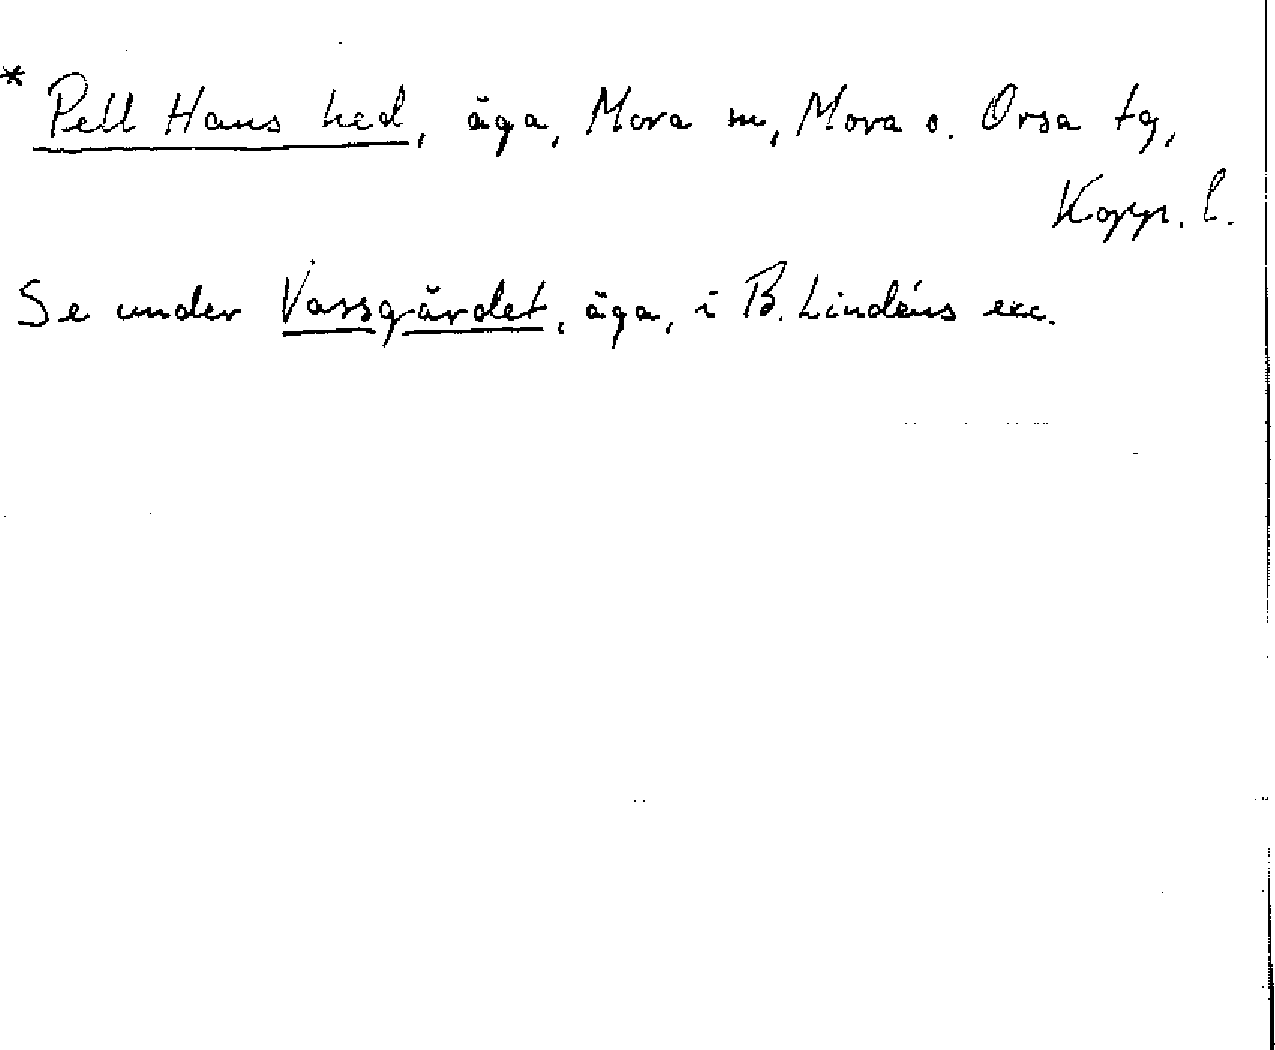 * Pell Hans hed, äga, Mora sn, Mora o. Orsa tg,
Kopp. l.
Se under Vassgärdet, äga, i B. Lindéns exc.